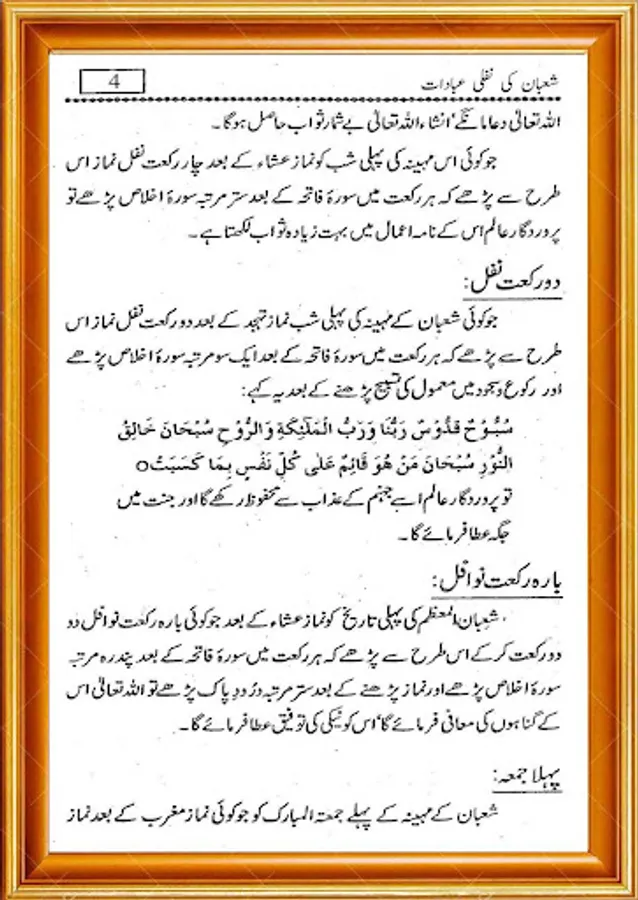 شعبان کی نفلی عبادات
4
اللہ تعالیٰ دعا مانگے، انشاء اللہ تعالیٰ بے شمار ثواب حاصل ہوگا۔
جو کوئی اس مہینہ کی پہلی شب کو نماز عشاء کے بعد چار رکعت نفل نماز اس
طرح سے پڑھے کہ ہر رکعت میں سورۂ فاتحہ کے بعد ستر مرتبہ سورۂ اخلاص پڑھے تو
پروردگار عالم اس کے نامہ اعمال میں بہت زیادہ ثواب لکھتا ہے۔
دو رکعت نفل:
جو کوئی شعبان کے مہینہ کی پہلی شب نماز تہجد کے بعد دو رکعت نفل نماز اس
طرح سے پڑھے کہ ہر رکعت میں سورۂ فاتحہ کے بعد ایک سو مرتبہ سورۂ اخلاص پڑھے
اور رکوع و سجود میں معمول کی تسبیح پڑھنے کے بعد یہ کہے:
سُبُّوْحٌ قُدُّوْسٌ رَبُّنَا وَرَبُّ الْمَلٰٓئِكَةِ وَالرُّوْحِ سُبْحَانَ خَالِقُ
النُّوْرِ سُبْحَانَ مَنْ هُوَ قَائِمٌ عَلٰى كُلِّ نَفْسٍ بِمَا كَسَبَتْ○
تو پروردگار عالم اسے جہنم کے عذاب سے محفوظ رکھے گا اور جنت میں
جگہ عطا فرمائے گا۔
بارہ رکعت نوافل:
شعبان المعظم کی پہلی تاریخ کو نماز عشاء کے بعد جو کوئی بارہ رکعت نوافل دو
دو رکعت کر کے اس طرح سے پڑھے کہ ہر رکعت میں سورۂ فاتحہ کے بعد پندرہ مرتبہ
سورۂ اخلاص پڑھے اور نماز پڑھنے کے بعد ستر مرتبہ درُود پاک پڑھے تو اللہ تعالیٰ اس
کے گناہوں کی معافی فرمائے گا، اس کو نیکی کی توفیق عطا فرمائے گا۔
پہلا جمعہ:
شعبان کے مہینہ کے پہلے جمعتہ المبارک کو جو کوئی نماز مغرب کے بعد نماز